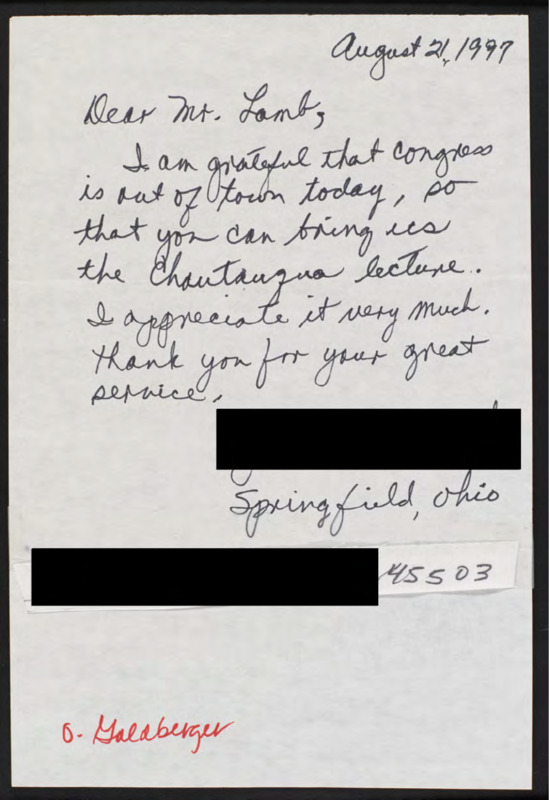 August 21, 1997
Dear Mr. Lamb,
I am grateful that congress
is out of town today, so
that you can bring us
the Chautauqua lecture.
I appreciate it very much.
Thank you for your great
service.
Springfield, Ohio
45503
O. Goldberger